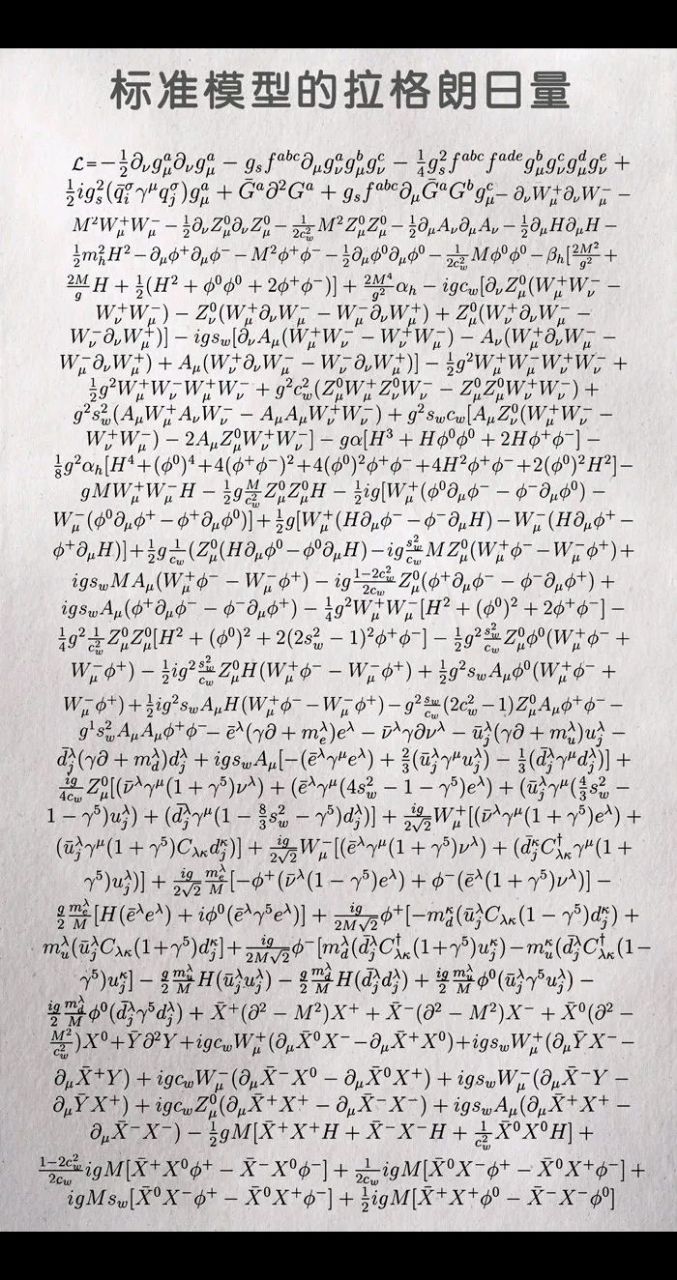 标准模型的拉格朗日量
ℒ=−½∂_νg^a_μ∂_νg^a_μ − g_sf^{abc}∂_μg^a_νg^b_μg^c_ν − ¼g²_sf^{abc}f^{ade}g^b_μg^c_νg^d_μg^e_ν +
½ig²_s(q̄^σ_iγ^μq^σ_j)g^a_μ + Ḡ^a∂²G^a + g_sf^{abc}∂_μḠ^aG^bg^c_μ − ∂_νW^+_μ∂_νW^-_μ −
M²W^+_μW^-_μ − ½∂_νZ^0_μ∂_νZ^0_μ − \frac{1}{2c²_w}M²Z^0_μZ^0_μ − ½∂_μA_ν∂_μA_ν − ½∂_μH∂_μH −
½m²_hH² − ∂_μφ^+∂_μφ^- − M²φ^+φ^- − ½∂_μφ^0∂_μφ^0 − \frac{1}{2c²_w}Mφ^0φ^0 − β_h[\frac{2M²}{g²} +
\frac{2M}{g}H + ½(H² + φ^0φ^0 + 2φ^+φ^-)] + \frac{2M^4}{g²}α_h − igc_w[∂_νZ^0_μ(W^+_μW^-_ν −
W^+_νW^-_μ) − Z^0_ν(W^+_μ∂_νW^-_μ − W^-_μ∂_νW^+_μ) + Z^0_μ(W^+_ν∂_νW^-_μ −
W^-_ν∂_νW^+_μ)] − igs_w[∂_νA_μ(W^+_μW^-_ν − W^+_νW^-_μ) − A_ν(W^+_μ∂_νW^-_μ −
W^-_μ∂_νW^+_μ) + A_μ(W^+_ν∂_νW^-_μ − W^-_ν∂_νW^+_μ)] − ½g²W^+_μW^-_μW^+_νW^-_ν +
½g²W^+_μW^-_νW^+_μW^-_ν + g²c²_w(Z^0_μW^+_μZ^0_νW^-_ν − Z^0_μZ^0_μW^+_νW^-_ν) +
g²s²_w(A_μW^+_μA_νW^-_ν − A_μA_μW^+_νW^-_ν) + g²s_wc_w[A_μZ^0_ν(W^+_μW^-_ν −
W^+_νW^-_μ) − 2A_μZ^0_μW^+_νW^-_ν] − gα[H³ + Hφ^0φ^0 + 2Hφ^+φ^-] −
⅛g²α_h[H^4+(φ^0)^4+4(φ^+φ^-)²+4(φ^0)²φ^+φ^-+4H²φ^+φ^-+2(φ^0)²H²]−
gMW^+_μW^-_μH − ½g\frac{M}{c²_w}Z^0_μZ^0_μH − ½ig[W^+_μ(φ^0∂_μφ^- − φ^-∂_μφ^0) −
W^-_μ(φ^0∂_μφ^+ − φ^+∂_μφ^0)] + ½g[W^+_μ(H∂_μφ^- − φ^-∂_μH) − W^-_μ(H∂_μφ^+ −
φ^+∂_μH)] + ½g\frac{1}{c_w}(Z^0_μ(H∂_μφ^0 − φ^0∂_μH) − ig\frac{s²_w}{c_w}MZ^0_μ(W^+_μφ^- − W^-_μφ^+) +
igs_wMA_μ(W^+_μφ^- − W^-_μφ^+) − ig\frac{1−2c²_w}{2c_w}Z^0_μ(φ^+∂_μφ^- − φ^-∂_μφ^+) +
igs_wA_μ(φ^+∂_μφ^- − φ^-∂_μφ^+) − ¼g²W^+_μW^-_μ[H² + (φ^0)² + 2φ^+φ^-] −
¼g²\frac{1}{c²_w}Z^0_μZ^0_μ[H² + (φ^0)² + 2(2s²_w − 1)²φ^+φ^-] − ½g²\frac{s²_w}{c_w}Z^0_μφ^0(W^+_μφ^- +
W^-_μφ^+) − ½ig²\frac{s²_w}{c_w}Z^0_μH(W^+_μφ^- − W^-_μφ^+) + ½g²s_wA_μφ^0(W^+_μφ^- +
W^-_μφ^+) + ½ig²s_wA_μH(W^+_μφ^- − W^-_μφ^+) − g²\frac{s_w}{c_w}(2c²_w − 1)Z^0_μA_μφ^+φ^- −
g^1s²_wA_μA_μφ^+φ^- − ē^λ(γ∂ + m^λ_e)e^λ − ν̄^λγ∂ν^λ − ū^λ_j(γ∂ + m^λ_u)u^λ_j −
d̄^λ_j(γ∂ + m^λ_d)d^λ_j + igs_wA_μ[−(ē^λγ^μe^λ) + ⅔(ū^λ_jγ^μu^λ_j) − ⅓(d̄^λ_jγ^μd^λ_j)] +
\frac{ig}{4c_w}Z^0_μ[(ν̄^λγ^μ(1 + γ^5)ν^λ) + (ē^λγ^μ(4s²_w − 1 − γ^5)e^λ) + (ū^λ_jγ^μ(\frac{4}{3}s²_w −
1 − γ^5)u^λ_j) + (d̄^λ_jγ^μ(1 − \frac{8}{3}s²_w − γ^5)d^λ_j)] + \frac{ig}{2√2}W^+_μ[(ν̄^λγ^μ(1 + γ^5)e^λ) +
(ū^λ_jγ^μ(1 + γ^5)C_{λκ}d^κ_j)] + \frac{ig}{2√2}W^-_μ[(ē^λγ^μ(1 + γ^5)ν^λ) + (d̄^κ_jC^†_{λκ}γ^μ(1 +
γ^5)u^λ_j)] + \frac{ig}{2√2}\frac{m^λ_e}{M}[−φ^+(ν̄^λ(1 − γ^5)e^λ) + φ^-(ē^λ(1 + γ^5)ν^λ)] −
\frac{g}{2}\frac{m^λ_e}{M}[H(ē^λe^λ) + iφ^0(ē^λγ^5e^λ)] + \frac{ig}{2M√2}φ^+[−m^κ_d(ū^λ_jC_{λκ}(1 − γ^5)d^κ_j) +
m^λ_u(ū^λ_jC_{λκ}(1+γ^5)d^κ_j] + \frac{ig}{2M√2}φ^-[m^λ_d(d̄^λ_jC^†_{λκ}(1+γ^5)u^κ_j) − m^κ_u(d̄^λ_jC^†_{λκ}(1−
γ^5)u^κ_j] − \frac{g}{2}\frac{m^λ_u}{M}H(ū^λ_ju^λ_j) − \frac{g}{2}\frac{m^λ_d}{M}H(d̄^λ_jd^λ_j) + \frac{ig}{2}\frac{m^λ_u}{M}φ^0(ū^λ_jγ^5u^λ_j) −
\frac{ig}{2}\frac{m^λ_d}{M}φ^0(d̄^λ_jγ^5d^λ_j) + X̄^+(∂² − M²)X^+ + X̄^-(∂² − M²)X^- + X̄^0(∂² −
\frac{M²}{c²_w})X^0 + Ȳ∂²Y + igc_wW^+_μ(∂_μX̄^0X^- − ∂_μX̄^+X^0) + igs_wW^+_μ(∂_μȲX^- −
∂_μX̄^+Y) + igc_wW^-_μ(∂_μX̄^-X^0 − ∂_μX̄^0X^+) + igs_wW^-_μ(∂_μX̄^-Y −
∂_μȲX^+) + igc_wZ^0_μ(∂_μX̄^+X^+ − ∂_μX̄^-X^-) + igs_wA_μ(∂_μX̄^+X^+ −
∂_μX̄^-X^-) − ½gM[X̄^+X^+H + X̄^-X^-H + \frac{1}{c²_w}X̄^0X^0H] +
\frac{1−2c²_w}{2c_w}igM[X̄^+X^0φ^+ − X̄^-X^0φ^-] + \frac{1}{2c_w}igM[X̄^0X^-φ^+ − X̄^0X^+φ^-] +
igMs_w[X̄^0X^-φ^+ − X̄^0X^+φ^-] + ½igM[X̄^+X^+φ^0 − X̄^-X^-φ^0]